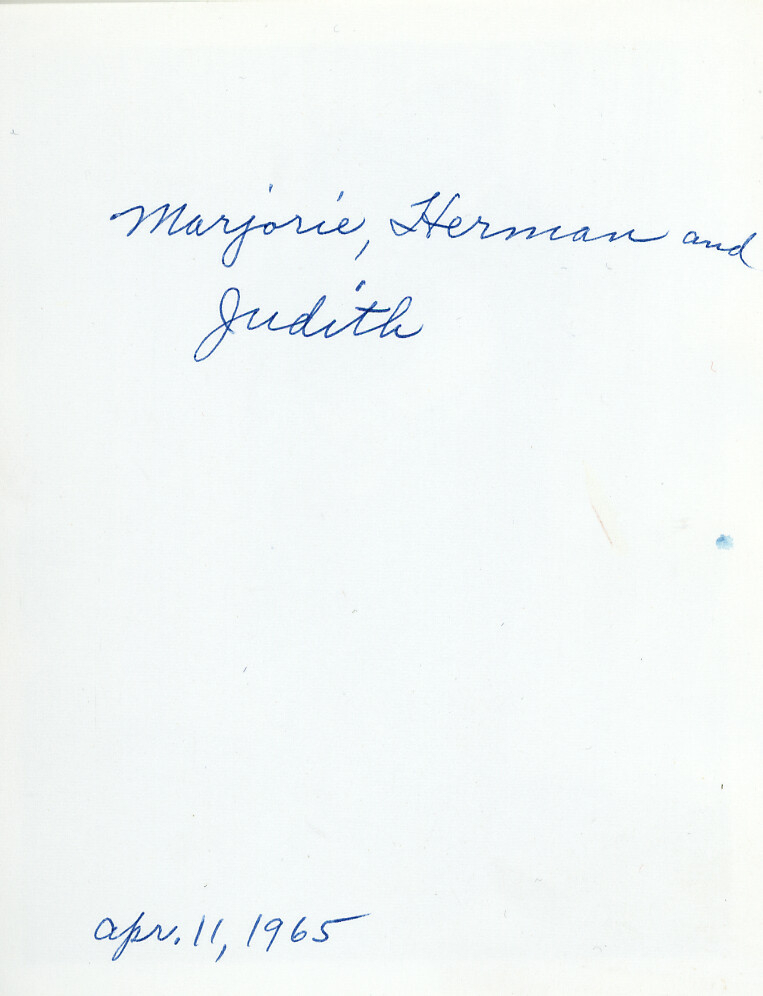 Marjorie, Herman and
Judith
Apr. 11, 1965